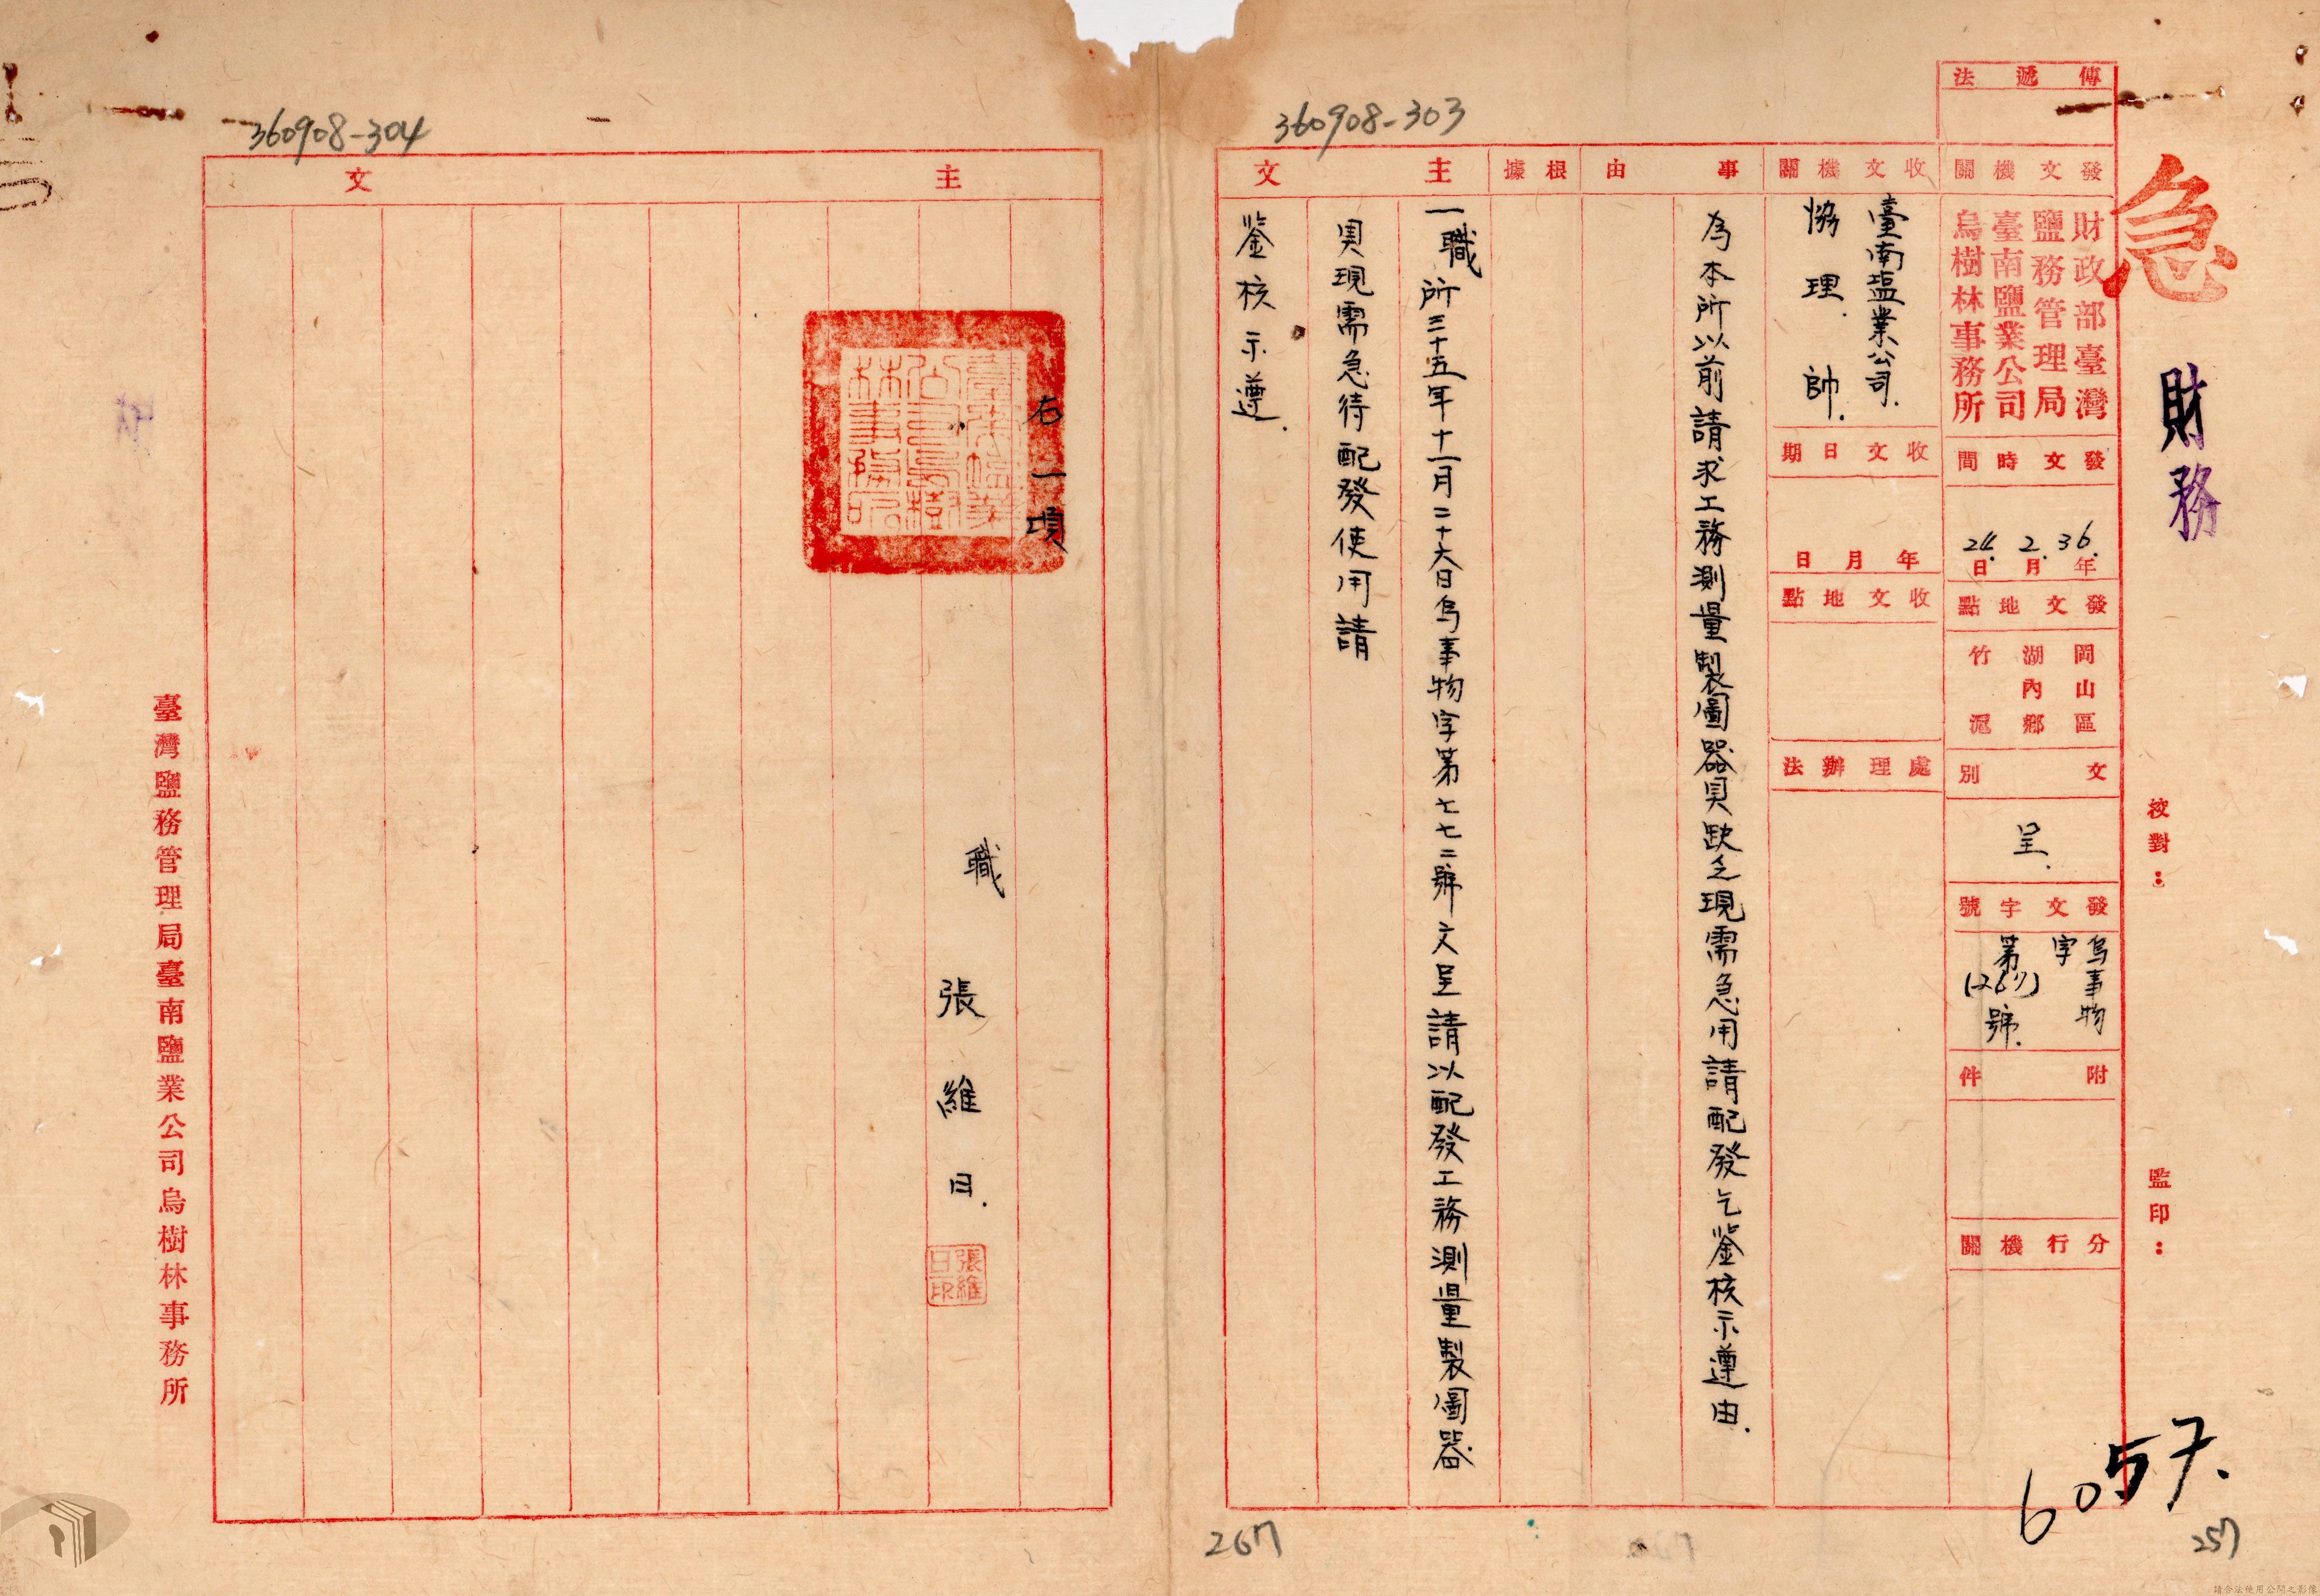 急
財務
校對：
監印：
6057.
257
傳遞法
發文機關
財政部臺灣
鹽務管理局
臺南鹽業公司
烏樹林事務所
發文時間
36.年2.月24.日
發文地點
岡山區
湖內鄉
竹滬
文別
呈.
發文字號
烏事物
字
第
號.
附件
分行機關
收文機關
臺南塩業公司.
協理.帥.
收文日期
年月日
收文地點
處理辦法
事由
為本所以前請求工務測量製圖器具缺乏現需急用請配發乞鑒核示遵由.
根據
主文
360908-303
一職所三十五年十一月二十六日烏事物字第七七二號文呈請以配發工務測量製圖器
具現需急待配發使用請
鉴核示遵.
267
360908-304
主文
右一項
臺南塩業
公司烏樹
林事務所
職
張維日.
張維
日印
臺灣鹽務管理局臺南鹽業公司烏樹林事務所
請合法使用公開之影像